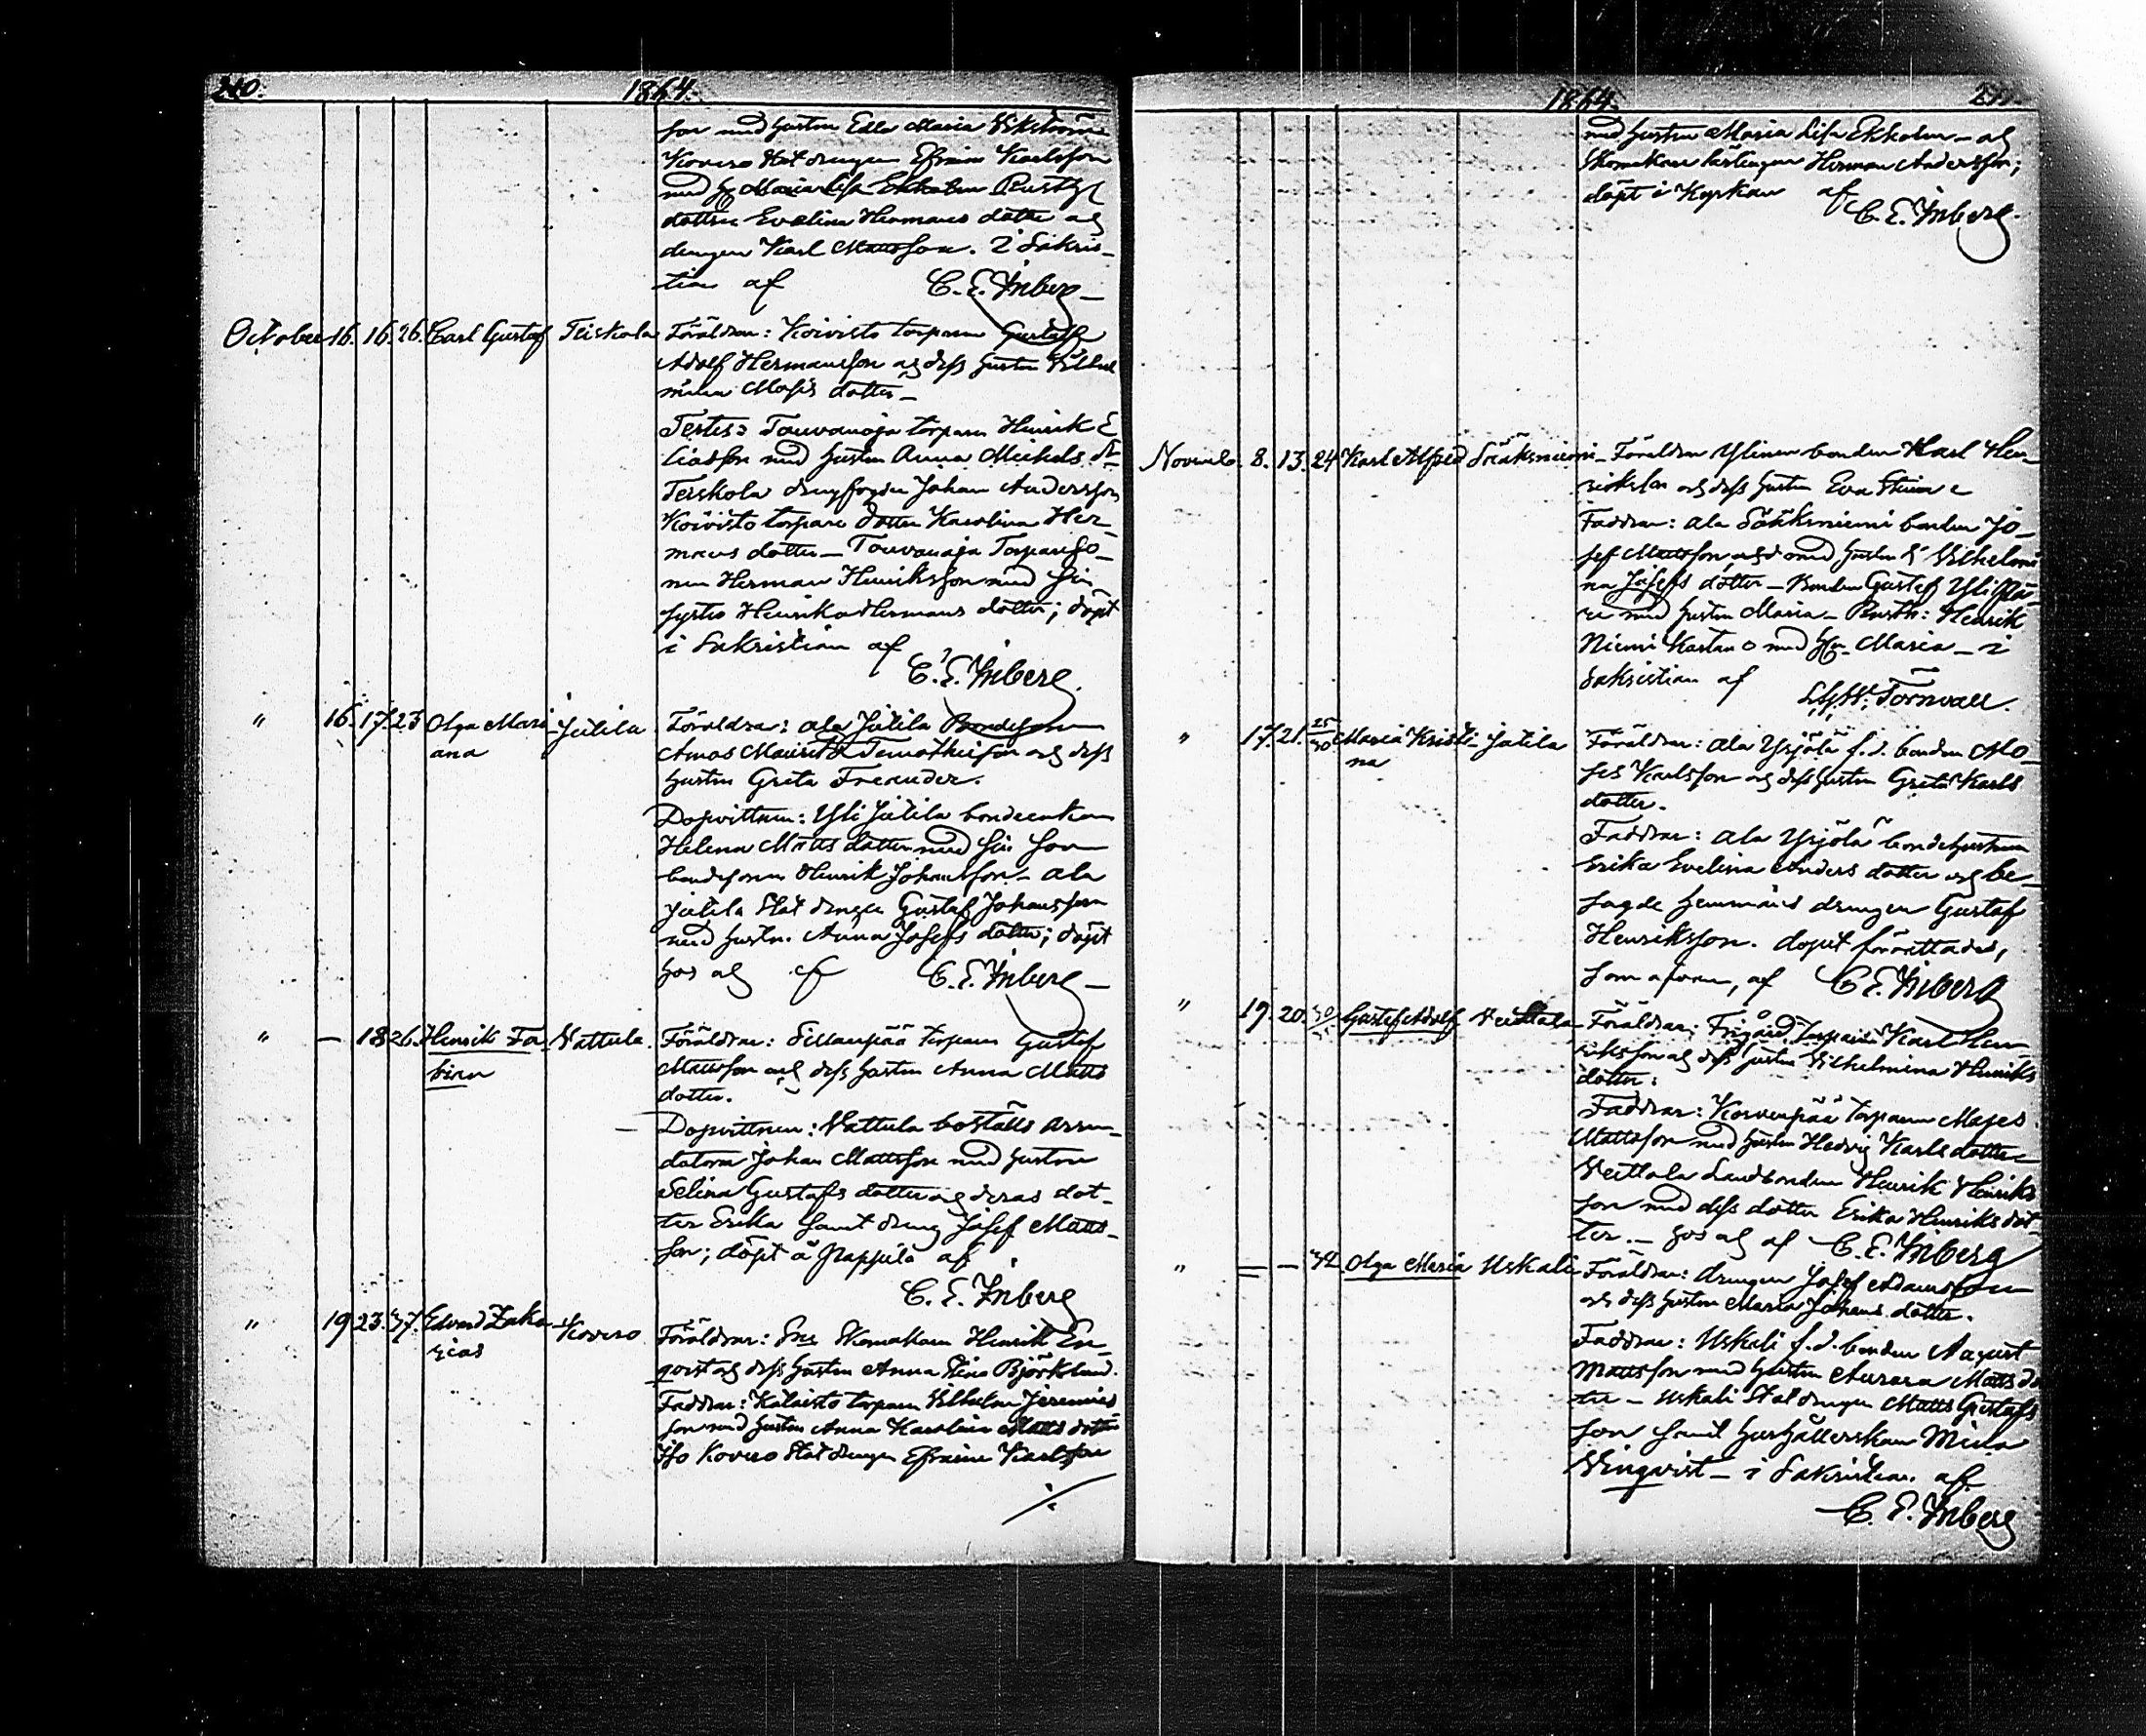 210.
1864.
son med hustru Edla Maria Vikström
Kovero Stat drengen Efraim Karlsson
med h. Maria Lisa Ekholm
dottern Evelina Hermans dotter och
drengen Karl Mattsson. I Sakris-
tian af C. E. Inberg
October 16. 16. 26. Carl Gustaf Teiskola Föräldrar: Koivisto torparen Gustaf
Adolf Hermansson och dess hustru Vilhel
mina Mosis dotter
Testes: Touvanoja torparen Henrik E
liasson med hustru Anna Michels dr
Teiskola Johan Andersson
Koivisto torpare dotter Karolina Her-
mans dotter - Touvanoja Torpareso-
nen Herman Henriksson med sin
syster Henrika Hermans dotter; döpt
i Sakristian af
C. E. Inberg.
" 16. 17. 23 Olga Mari- Jutila Föräldrar: Ala Jutila Bondesonen
ana Amos Mauritz Timotheison och dess
hustru Greta Freander.
Dopvittnen: Yli Jutila bondeenkan
Helena Matts dotter med sin son
bondesonen Henrik Johansson - Ala
Jutila Stat drengen Gustaf Johansson
med hustru Anna Josefs dotter; döpt
hos af C. E. Inberg
" - 18 26. Henrik Fa- Vattula. Föräldrar: Sillanpää torparen Gustaf
bian Mattsson och dess hustru Anna Matts
dotter.
Dopvittnen: Vattula boställs arren-
datorn Johan Mattsson med hustru
Selina Gustafs dotter och deras dot-
ter Erika samt dreng Josef Matts-
son; döpt å Pappila af
C. E. Inberg
" 19 23. 37. Edvard Zaka- Kovero Föräldrar: Skomakaren Henrik En-
rias qvist och dess hustru Anna Stina Björklund.
Faddrar: torparen Vilhelm Jeremias
son med hustru Anna Karolina Matts dotter
Iso Kovero Stat drengen Efraim Karlsson
1864.
med hustru Maria Lisa Ekholm - och
Skomakare lärlingen Herman Andersson;
döpt i Kyrkan af
C. E. Inberg.
Novemb. 8. 13. 24 Karl Alfred Sääksniemi - Föräldrar Ylinen bonden Karl Hen-
riksson och dess hustru Eva Stina
Faddrar: Ala Sääksniemi bonden Jo-
sef Mattsson med hustru Vilhelmi
na Josefs dotter - Bonden Gustaf
med hustru Maria - Rusth: Henrik
Niemi Kartano med Maria - i
Sakristian af
Törnvall.
" 17. 21. 25/30 Maria Kristi- Jutila Föräldrar: Ala Yrjölä f.d. bonden Mo-
na ses Karlsson och dess hustru Greta Karls
dotter.
Faddrar: Ala Yrjölä bondehustrun
Erika Evelina Anders dotter och be-
sagde hemmans drengen Gustaf
Henriksson. dopet förrättades,
som ofvan, af C. E. Inberg
" 19. 20. Gustaf Adolf Föräldrar: Frigård Torparen Karl Hen
riksson och dess hustru Vilhelmina Henriks
dotter:
Faddrar: Korvenpää torparen Moses
Mattsson med hustru Hedvig Karls dotter
Landbonden Henrik Henriks
son med dess dotter Erika Henriks dot
ter. - hos af C. E. Inberg
" - 32. Olga Maria Uskali Föräldrar: drengen Josef Adamsson
och dess hustru Maria Johans dotter.
Faddrar: Uskali f.d. bonden August
Mattsson med hustru Aurora Matts do
ter - Uskali Stat drengen Matts Gustafs
son samt hushållerskan Mina
Vinqvist - i Sakristian. af
C. E. Inberg